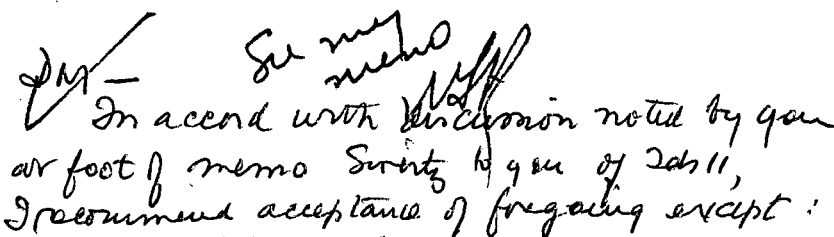 See my
memo
In accord with discussion noted by you
at foot of memo Swertz to you of Feb 11,
I recommend acceptance of foregoing except: